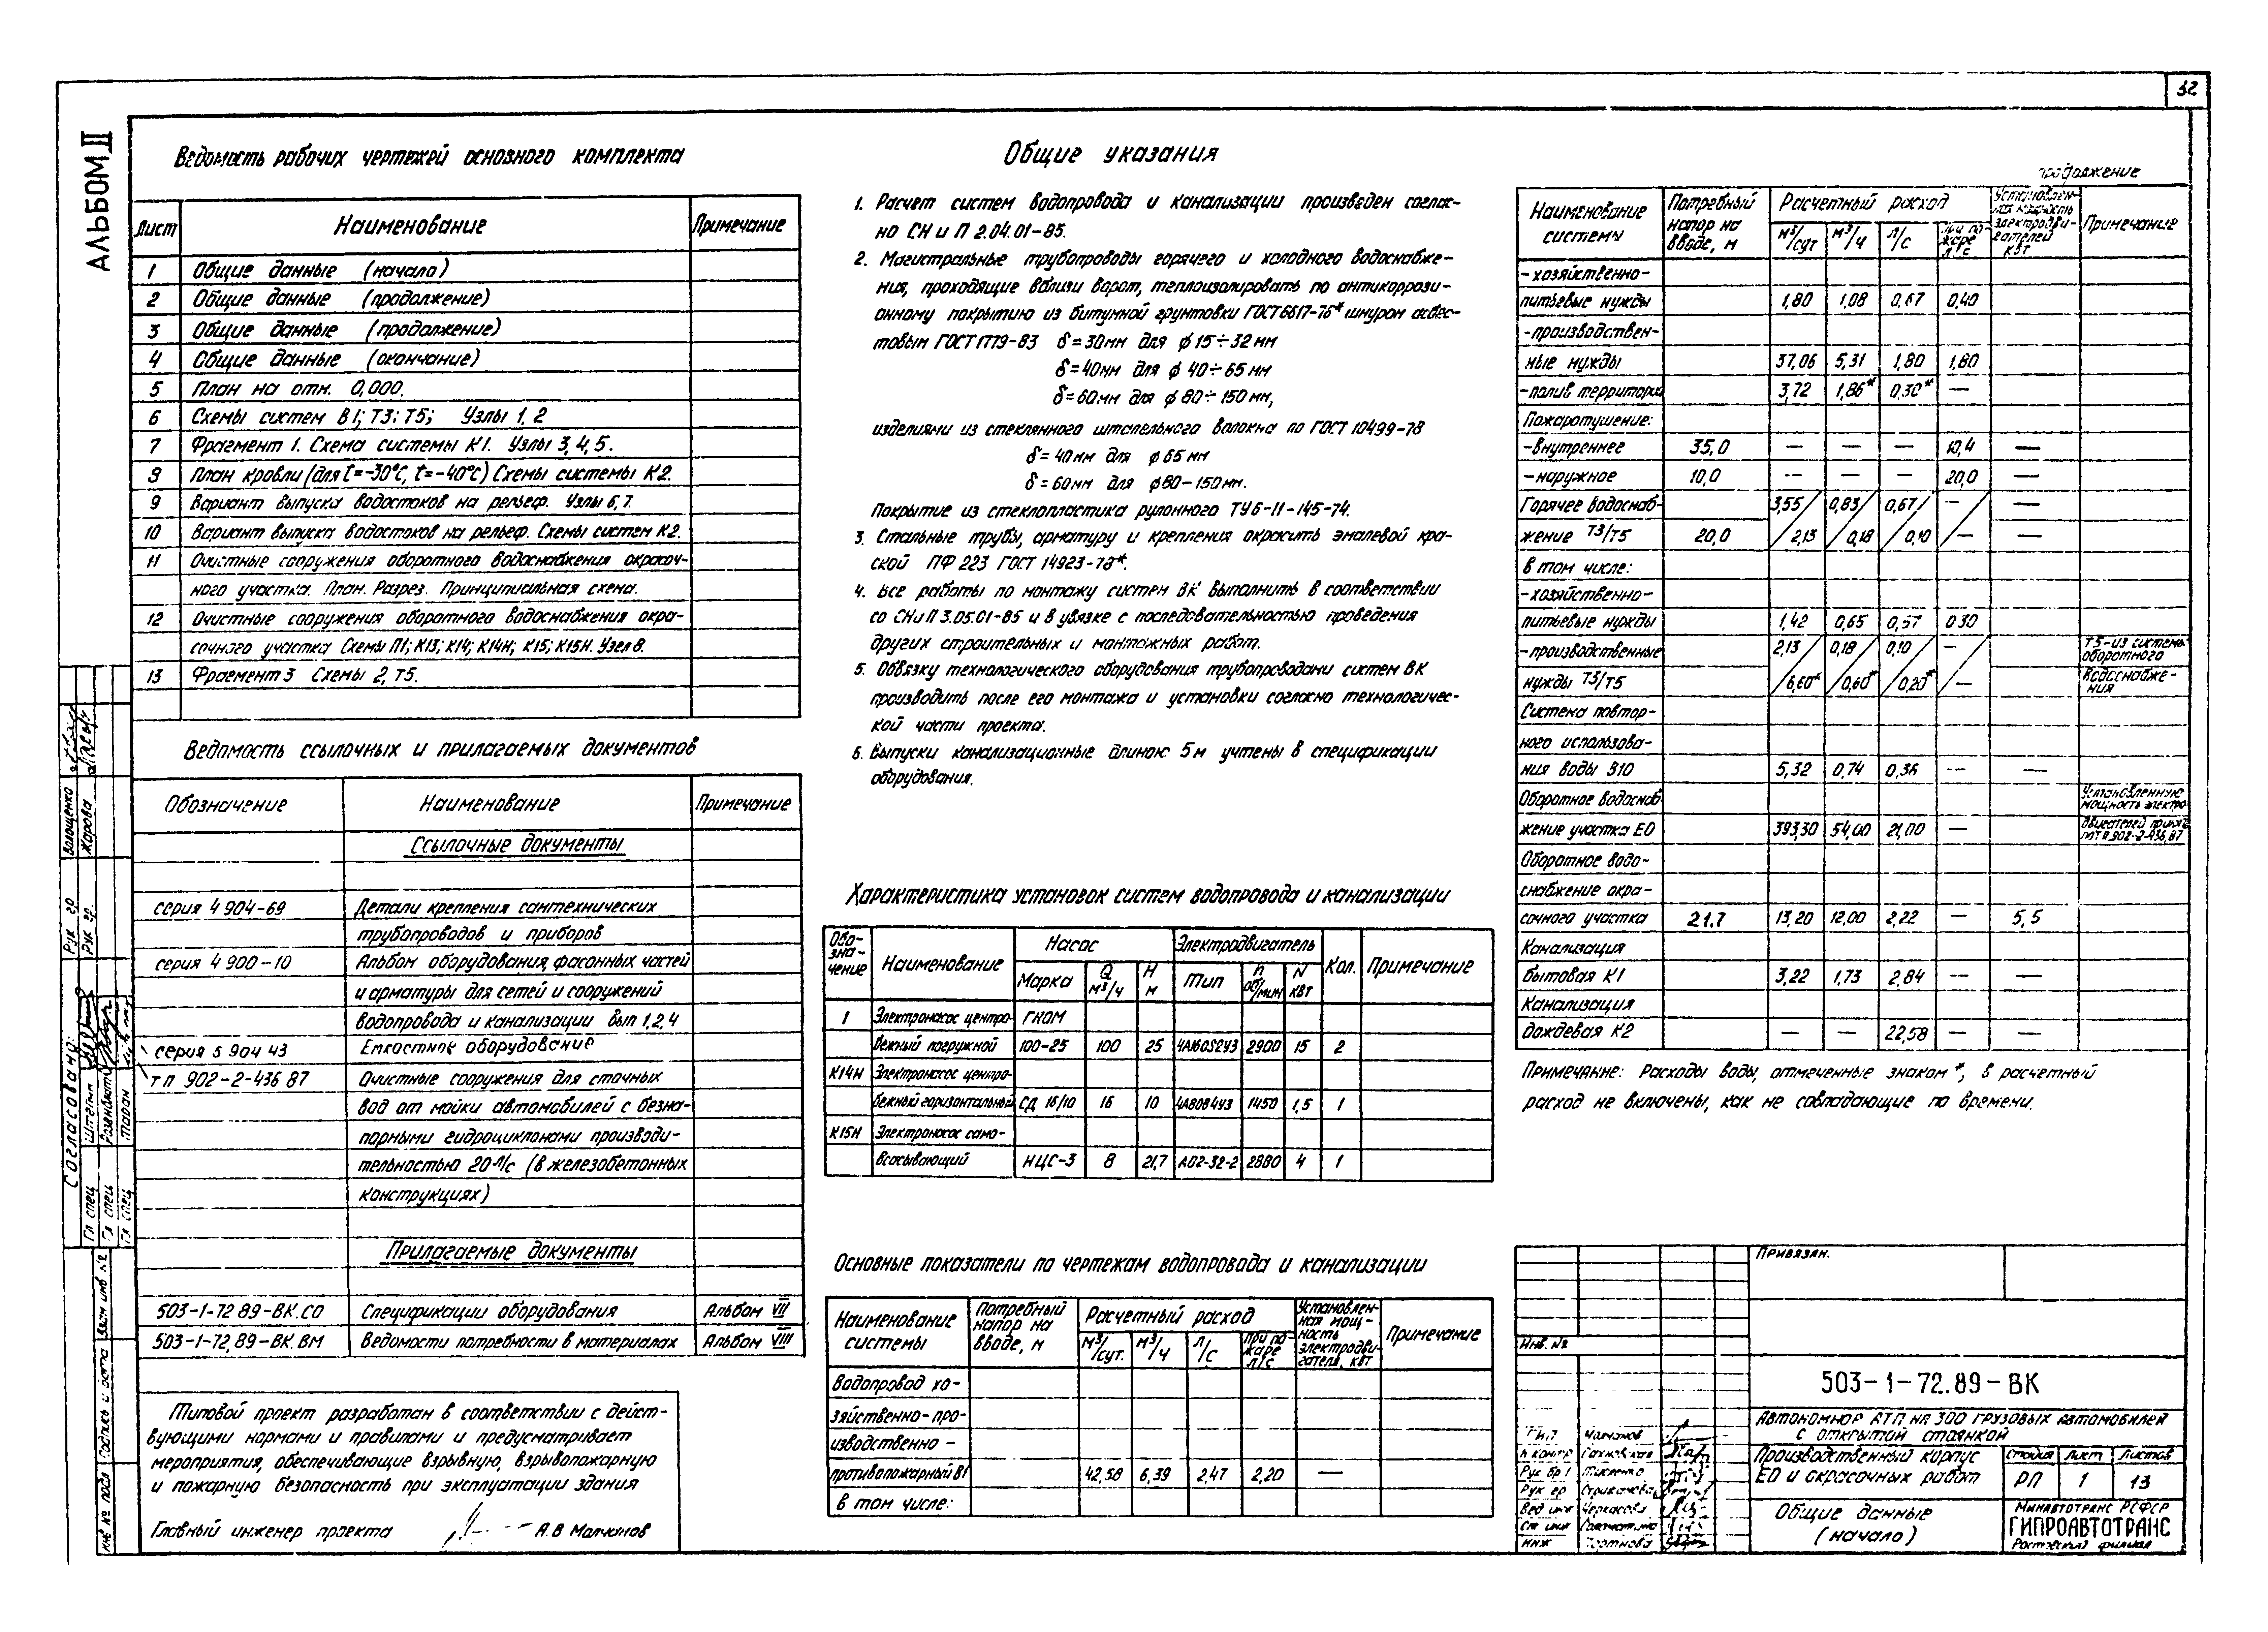 32
АЛЬБОМ II
Ведомость рабочих чертежей основного комплекта
Лист Наименование Примечание
1 Общие данные (начало)
2 Общие данные (продолжение)
3 Общие данные (продолжение)
4 Общие данные (окончание)
5 План на отм. 0,000.
6 Схемы систем В1; Т3; Т5; Узлы 1, 2
7 Фрагмент 1. Схема системы К1. Узлы 3, 4, 5.
8 План кровли (для t=-30°С, t=-40°С) Схемы системы К2.
9 Вариант выпуска водостоков на рельеф. Узлы 6, 7.
10 Вариант выпуска водостоков на рельеф. Схемы систем К2.
11 Очистные сооружения оборотного водоснабжения окрасоч-
ного участка. План. Разрез. Принципиальная схема.
12 Очистные сооружения оборотного водоснабжения окра-
сочного участка Схемы П1; К13; К14; К14Н; К15; К15Н. Узел 8.
13 Фрагмент 3 Схемы 2, Т5.
Ведомость ссылочных и прилагаемых документов
Обозначение Наименование Примечание
Ссылочные документы
серия 4 904-69 Детали крепления сантехнических
трубопроводов и приборов
серия 4 900-10 Альбом оборудования, фасонных частей
и арматуры для сетей и сооружений
водопровода и канализации вып 1, 2, 4
серия 5 904 43 Емкостное оборудование
тп 902-2-436 87 Очистные сооружения для сточных
вод от мойки автомобилей с безна-
порными гидроциклонами производи-
тельностью 20 л/с (в железобетонных
конструкциях)
Прилагаемые документы
503-1-72 89-ВК.СО Спецификации оборудования Альбом VII
503-1-72,89-ВК.ВМ Ведомости потребности в материалах Альбом VIII
Типовой проект разработан в соответствии с дейст-
вующими нормами и правилами и предусматривает
мероприятия, обеспечивающие взрывную, взрывопожарную
и пожарную безопасность при эксплуатации здания
Главный инженер проекта А.В Молчанов
Общие указания
1. Расчет систем водопровода и канализации произведен соглас-
но СН и П 2.04.01-85.
2. Магистральные трубопроводы горячего и холодного водоснабже-
ния, проходящие вблизи ворот, теплоизолировать по антикоррози-
онному покрытию из битумной грунтовки ГОСТ 6617-76* шнуром асбес-
товым ГОСТ 1779-83 δ=30мм для ϕ 15÷32 мм
δ=40мм для ϕ 40÷65 мм
δ=60мм для ϕ 80÷150 мм,
изделиями из стеклянного штапельного волокна по ГОСТ 10499-78
δ=40мм для ϕ65 мм
δ=60мм для ϕ80-150мм.
Покрытие из стеклопластика рулонного ТУ6-11-145-74.
3. Стальные трубы, арматуру и крепления окрасить эмалевой кра-
ской ПФ 223 ГОСТ 14923-78*.
4. Все работы по монтажу систем ВК выполнить в соответствии
со СНиП 3.05.01-85 и в увязке с последовательностью проведения
других строительных и монтажных работ.
5. Обвязку технологического оборудования трубопроводами систем ВК
производить после его монтажа и установки согласно технологичес-
кой части проекта.
6. Выпуски канализационные длиною 5м учтены в спецификации
оборудования.
Характеристика установок систем водопровода и канализации
Обо-зна-чение Наименование Насос Электродвигатель Кол. Примечание
Марка Q м³/ч Н м Тип n об/мин N квт
1 Электронасос центро- ГНОМ
бежный погружной 100-25 100 25 4А160S2У3 2900 15 2
К14Н Электронасос центро-
бежный горизонтальный СД 16/10 16 10 4А80В4У3 1450 1,5 1
К15Н Электронасос само-
всасывающий НЦС-3 8 21,7 АО2-32-2 2880 4 1
Основные показатели по чертежам водопровода и канализации
Наименование системы Потребный напор на вводе, м Расчетный расход Установлен-ная мощ-ность электродви-гателя, квт Примечание
м³/сут. м³/ч л/с При по-жаре л/с
Водопровод хо-
зяйственно-про-
изводственно-
противопожарный В1 42,58 6,39 2,47 2,20 —
в том числе:
продолжение
Наименование системы Потребный напор на вводе, м Расчетный расход Установлен-ная мощность электродви-гателей квт Примечание
м³/сут м³/ч л/с при по-жаре л/с
-хозяйственно-
питьевые нужды 1,80 1,08 0,67 0,40
-производствен-
ные нужды 37,06 5,31 1,80 1,80
-полив территории 3,72 1,86* 0,30* —
Пожаротушение:
-внутреннее 35,0 — — — 10,4 —
-наружное 10,0 — — — 20,0 —
Горячее водоснаб- 3,55 0,83 0,67 — —
жение Т3/Т5 20,0 2,13 0,18 0,10 — —
в том числе:
-хозяйственно-
питьевые нужды 1,42 0,65 0,57 0 30
-производственные 2,13 0,18 0,10 — Т5-из системы оборотного
нужды Т3/Т5 6,60* 0,60* 0,20* — водоснабже-ния
Система повтор-
ного использова-
ния воды В10 5,32 0,74 0,36 — —
Оборотное водоснаб- Установленную мощность электро-
жение участка ЕО 393,30 54,00 21,00 — двигателей 902-2-436,87
Оборотное водо-
снабжение окра-
сочного участка 21.7 13,20 12,00 2,22 — 5,5
Канализация
бытовая К1 3,22 1,73 2,84 — —
Канализация
дождевая К2 — — 22,58 — —
Примечание: Расходы воды, отмеченные знаком *, в расчетный
расход не включены, как не совпадающие по времени.
Привязан.
Инв. №
503-1-72.89-ВК
Автономное АТП на 300 грузовых автомобилей
с открытой стоянкой
Производственный корпус
ЕО и окрасочных работ
Стадия Лист Листов
РП 1 13
Общие данные
(начало)
Минавтотранс РСФСР
ГИПРОАВТОТРАНС
Ростовский филиал
ГИП Молчанов
Н контр
Рук бр
Рук гр
Вед инж Черкасова
Ст инж
Инж Портнова
Согласовано:
Рук гр Волощенко
Рук гр. Жарова
Гл спец
Гл спец
Гл спец
Взам инв №
Подпись и дата
Инв № подл